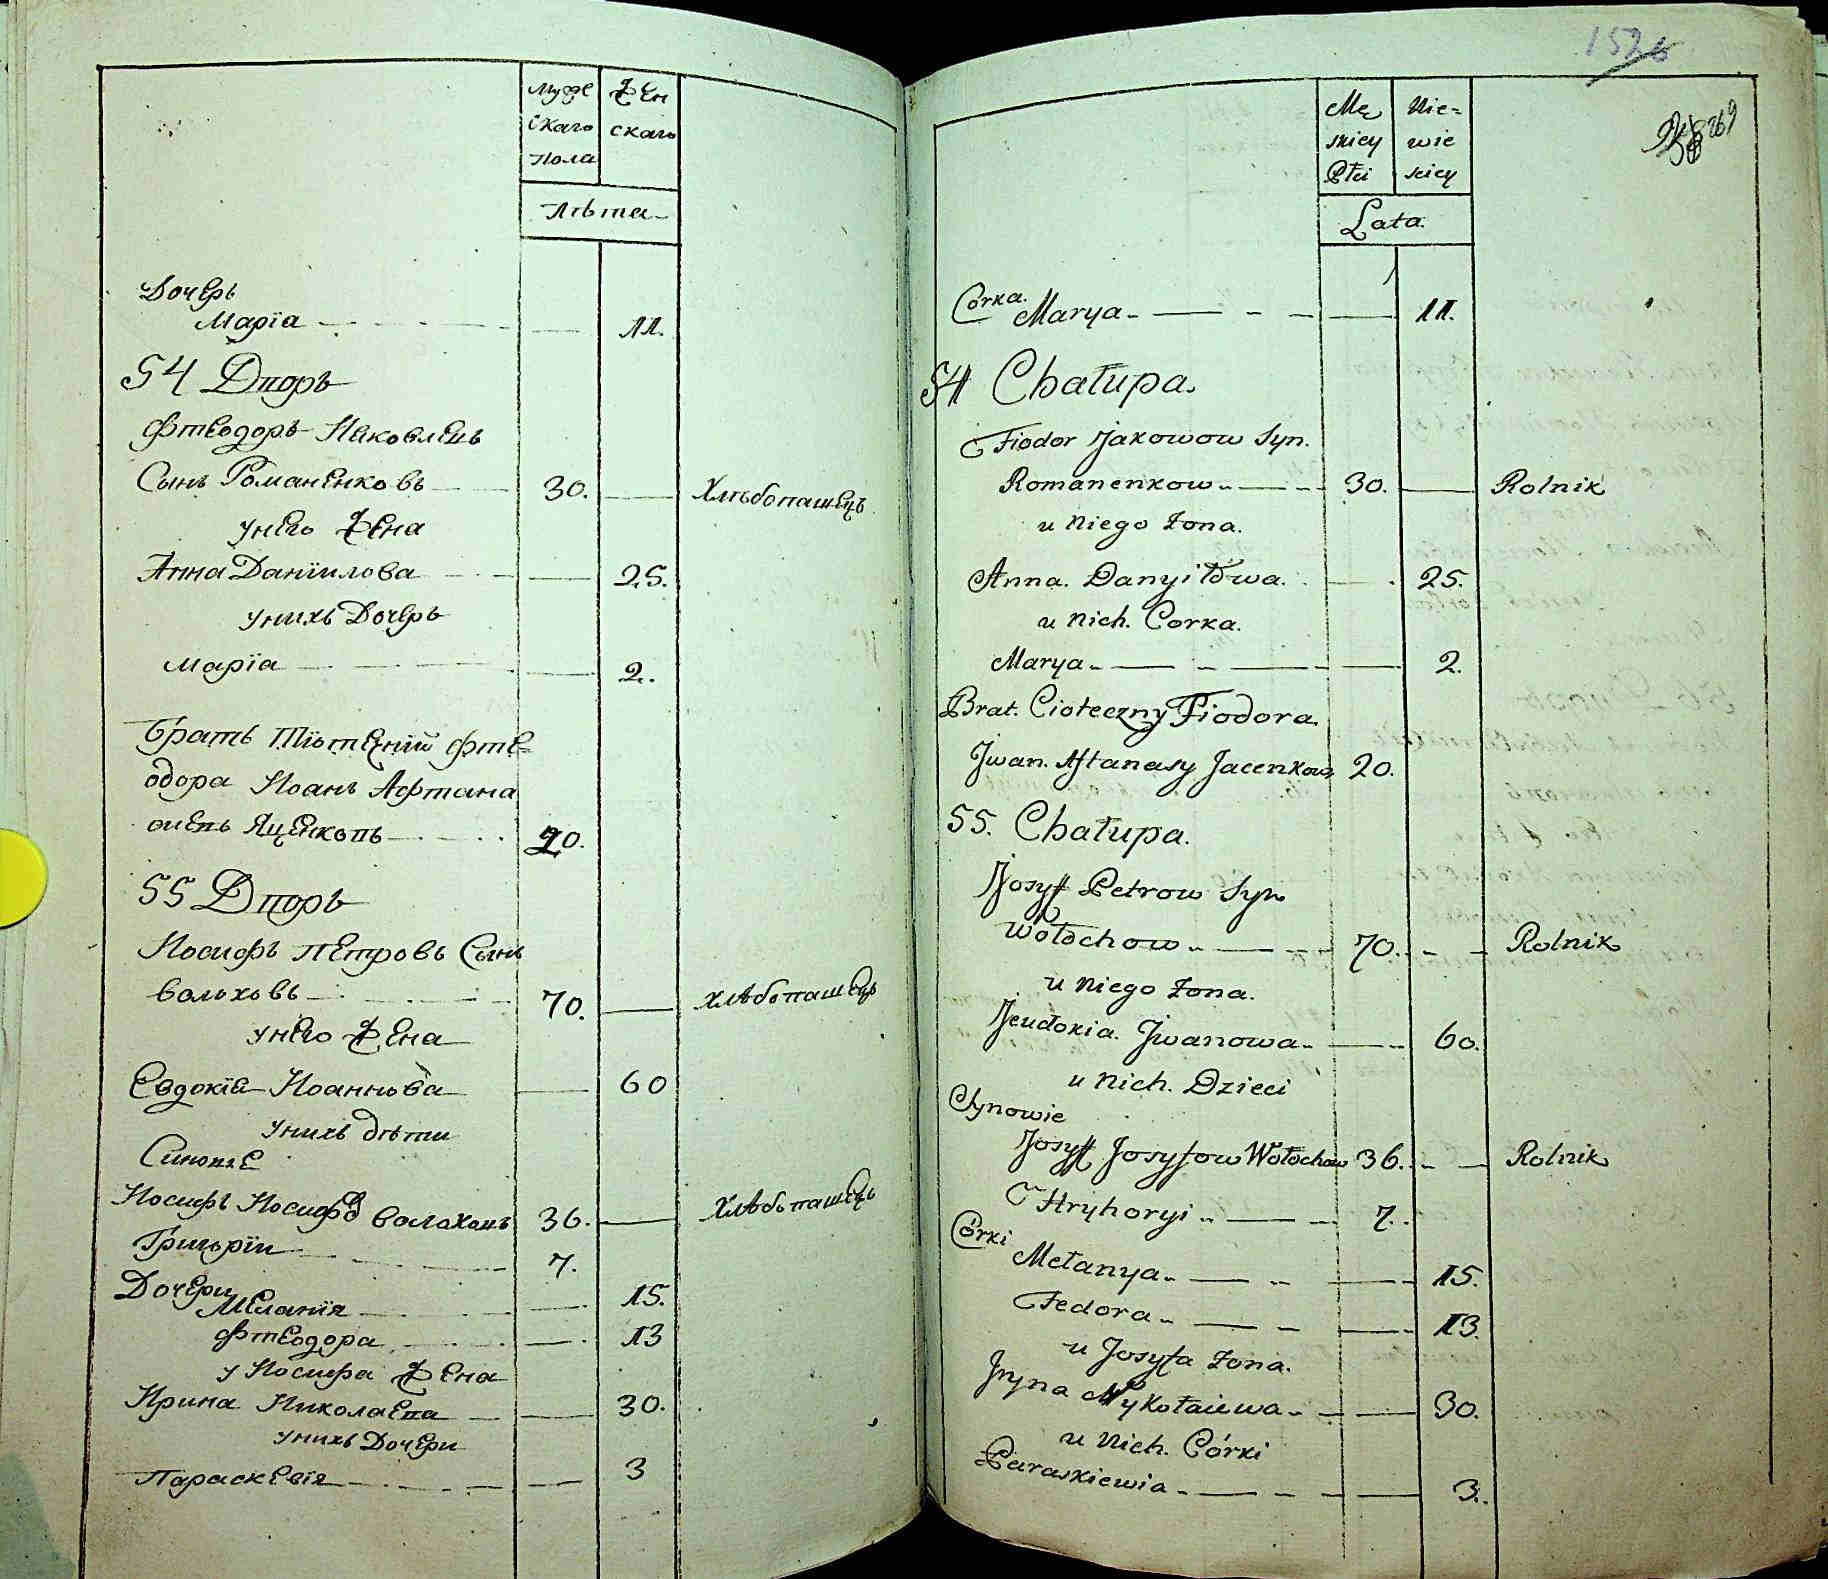 Муже
скаго
пола
Жен
скаго
Лѣта
Дочерь
Марїа 11.
54 Дворъ
Фтеодоръ Иаковлевъ
Сынъ Романенковъ 30. Хлѣбопашецъ
унего Жена
Анна Данїилова 25.
унихъ Дочерь
Марїа 2.
братъ Тїотечнїй Фте-
одора Иоанъ Афтана
сиевъ Яценковъ 20.
55 Дворъ
Иосифъ Петровъ Сынъ
Волоховъ 70. Хлѣбопашецъ
унего Жена
Евдокїа Иоаннова 60
унихъ дѣти
Синовїе
Иосифъ Иосифов Волоховъ 36. Хлѣбопашецъ
Григорїи 7.
Дочери
Меланїя 15.
Фтеодора 13
у Иосифа Жена
Ирина Николаева 30.
унихъ Дочери
Параскевїя 3
1526
269
Mę
skiey
Płci
Nie=
wie
sciey
Lata.
Córka.
Marya 11.
54 Chałupa.
Fiodor Jakowow Syn.
Romanenkow 30. Rolnik
u Niego Zona.
Anna. Danyiłowa. 25.
u Nich. Corka.
Marya 2.
Brat. Cioteczny Fiodora.
Jwan. Aftanasy Jacenkow 20.
55. Chałupa.
Josyff Petrow Syn
Wołochow 70. Rolnik
u Niego Zona.
Jeudokia. Jwanowa 60.
u Nich. Dzieci
Synowie
Josyff Josyfow Wołochow 36. Rolnik
Hryhoryi 7.
Córki
Mełanya 15.
Fedora 13.
u Josyfa Zona.
Jryna Mykołaiewa 30.
u Nich. Córki
Paraskiewia 3.